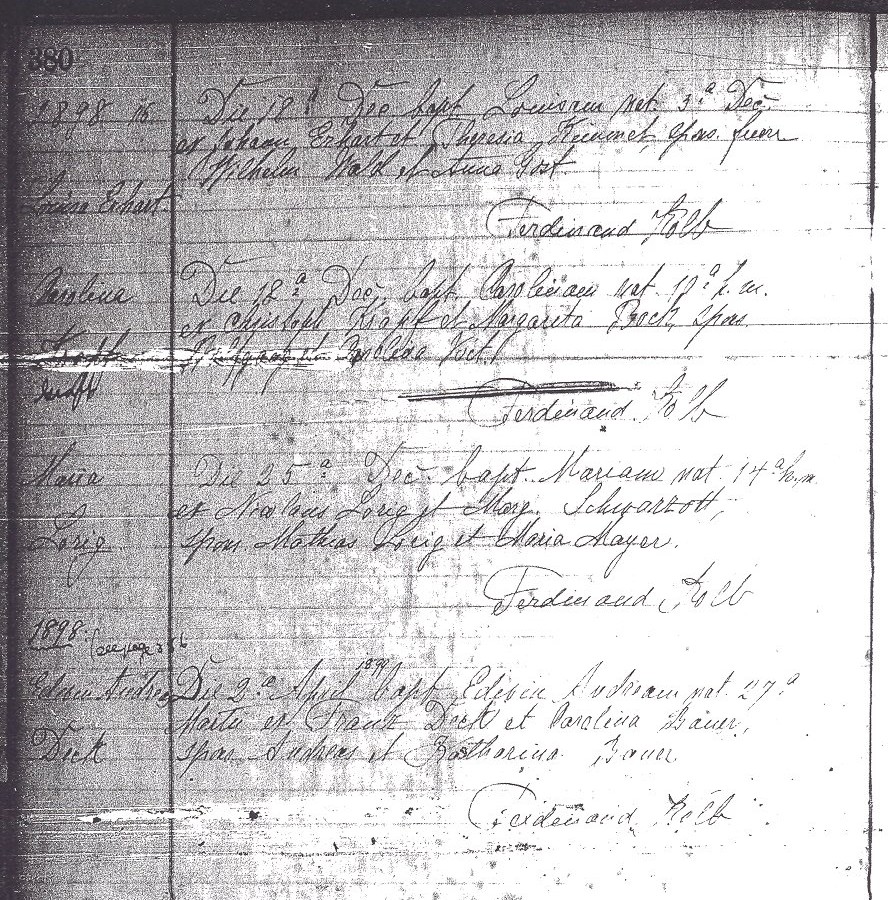 380
1898 Die 18ª Dec. bapt. Louisam nat. 3ª Dec.
ex Johann Erhart et Theresia spons. fuer.
Wilhelm et Anna
Louisa Erhart
Ferdinand Kolb
Carolina Die 18ª Dec. bapt. Carolinam nat. h. m.
ex Christoph Kraft et Margarita Bock, spons.
Carolina
Kraft
Ferdinand Kolb
Maria Die 25ª Dec. bapt. Mariam nat. 14ª h. m.
ex Nicolaus Lorig et Marg. Schwarzott,
Lorig spons. Mathias Lorig et Maria Mayer.
Ferdinand Kolb
1898. (see page
Edwin Andreas Die 2ª April bapt. Edwin Andream nat. 27ª
Martii ex Franz Deck et Carolina Bauer,
Deck spons. Andreas et Katharina Bauer
Ferdinand Kolb